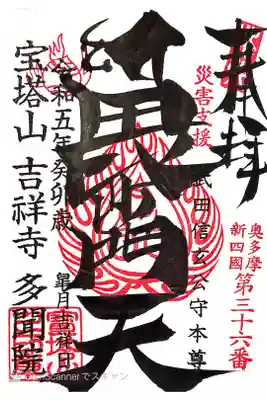 奉拝
奥多摩
新四國第三十六番
災害支援
武田信玄公守本尊
毘沙門天
令和五年癸卯歳 皐月吉祥日
宝塔山 吉祥寺 多聞院
CamScanner でスキャン